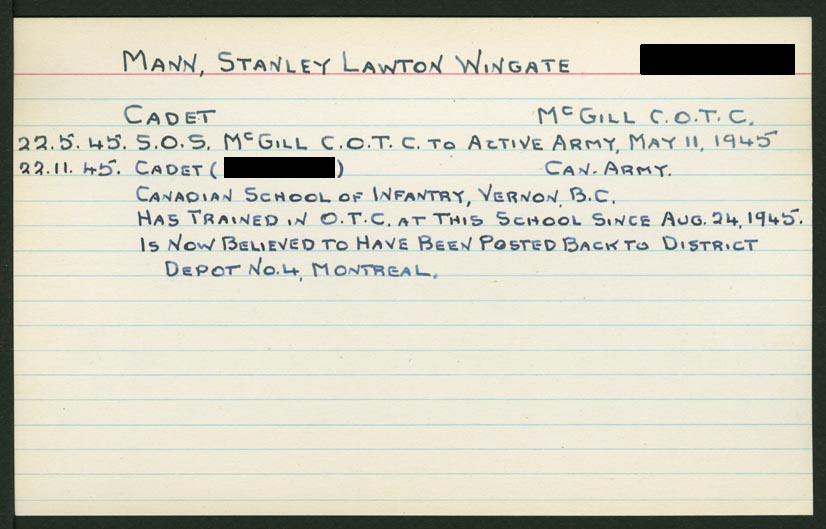 MANN, STANLEY LAWTON WINGATE
CADET McGILL C.O.T.C.
22.5.45. S.O.S. McGILL C.O.T.C. TO ACTIVE ARMY, MAY 11, 1945
22.11.45. CADET ( ) CAN. ARMY.
CANADIAN SCHOOL OF INFANTRY, VERNON, B.C.
HAS TRAINED IN O.T.C. AT THIS SCHOOL SINCE AUG. 24, 1945.
IS NOW BELIEVED TO HAVE BEEN POSTED BACK TO DISTRICT
DEPOT No. 4, MONTREAL.